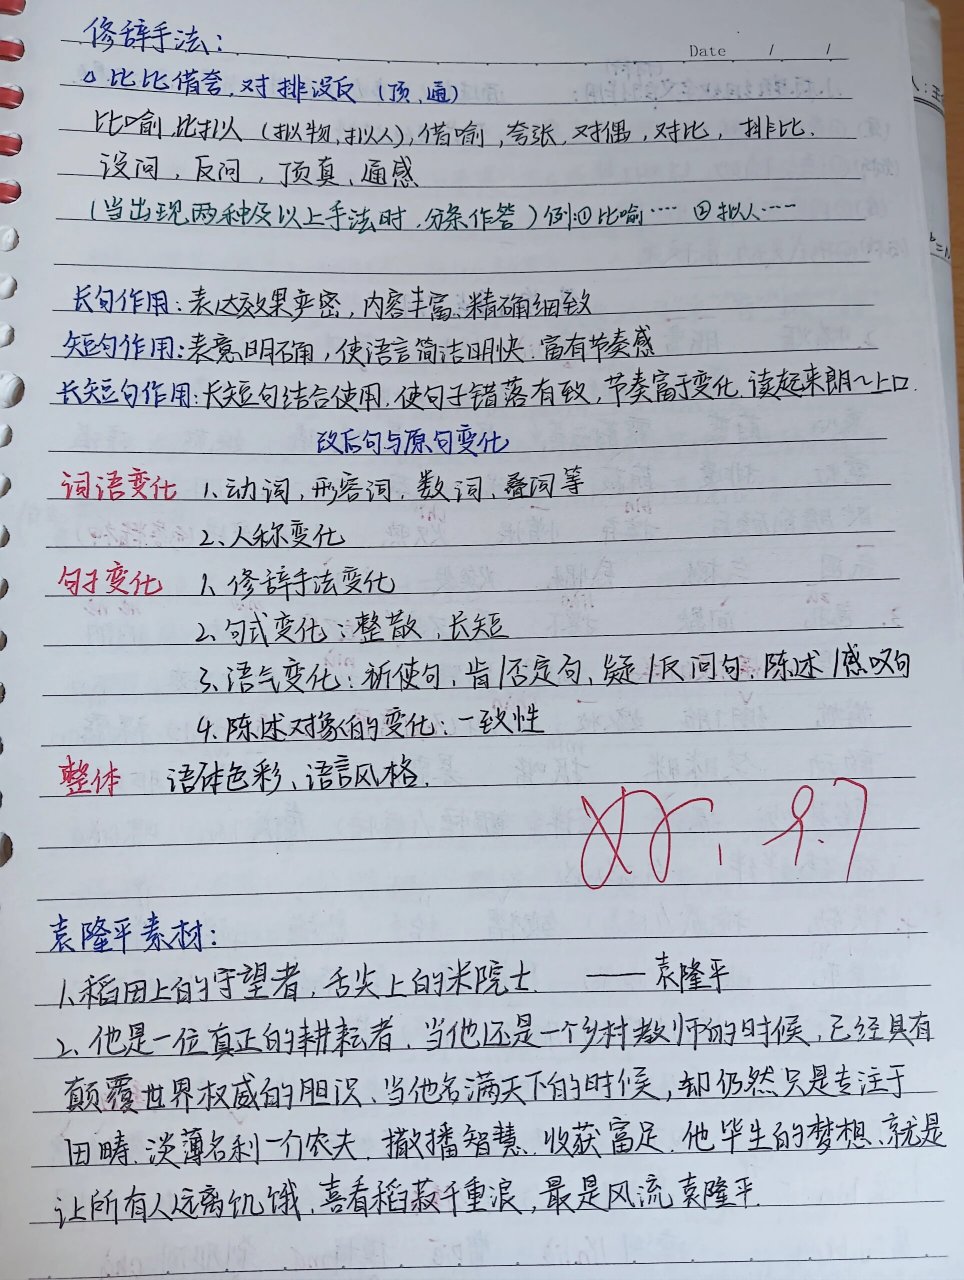 修辞手法:
Date / /
△比比借夸,对排设反(顶,通)
比喻,比拟(拟物,拟人),借喻,夸张,对偶,对比,排比.
设问,反问,顶真、通感
(当出现两种及以上手法时,分条作答)例:①比喻…… ②拟人……
长句作用:表达效果严密,内容丰富、精确细致
短句作用:表意明确,使语言简洁明快.富有节奏感
长短句作用:长短句结合使用,使句子错落有致,节奏富于变化,读起来朗~上口.
改后句与原句变化
词语变化 1.动词,形容词,数词、叠词等
2.人称变化
句子变化 1.修辞手法变化
2.句式变化:整散,长短
3.语气变化:祈使句,肯/否定句,疑/反问句,陈述/感叹句
4.陈述对象的变化:一致性
整体 语体色彩、语言风格.
好. 9.7
袁隆平素材:
1.稻田上的守望者,舌尖上的米院士. ——袁隆平
2.他是一位真正的耕耘者,当他还是一个乡村教师的时候,已经具有
颠覆世界权威的胆识、当他名满天下的时候,却仍然只是专注于
田畴,淡薄名利一个农夫,撒播智慧,收获富足,他毕生的梦想、就是
让所有人远离饥饿,喜看稻菽千重浪,最是风流袁隆平.